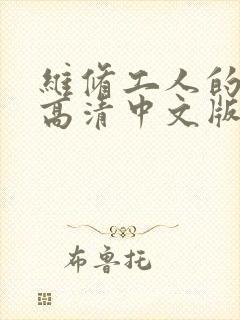 維脩工人的
高清中文版
布鲁托